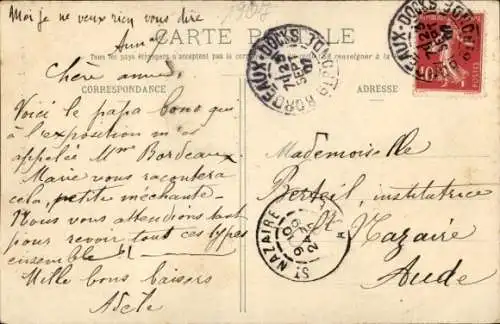 Moi je ne veux rien vous dire
1907
Anna
CARTE POSTALE
Tous les pays étrangers n'acceptent pas la
renseigner à la
CORRESPONDANCE
ADRESSE
BORDEAUX-DOCKS GIRONDE
7E 25
SEPT
07
BORDEAUX-DOCKS GIRONDE
Chère amie,
Voici le papa bono qui
à l'exposition m'a
appelée Mme Bordeaux.
Marie vous racontera
cela, petite méchante.
Nous vous attendons tant
pour revoir tout ces types
ensemble
Mille bons baisers
Adèle
Mademoiselle
Berteil, institutrice
St Nazaire
Aude
ST NAZAIRE